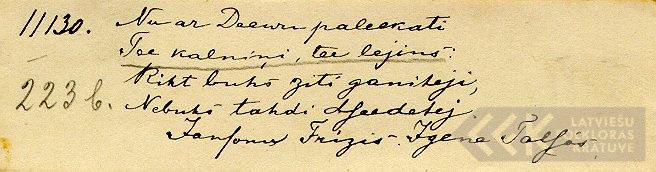 11130. Nu ar Deewu paleekati
Tee kalniņi, tee lejiņs:
Rikt buhs ziti ganiteji,
223 b. Nebuhs tahdi dseedetej
Jansons Frizis. Igene Talsos.
LATVIEŠU
FOLKLORAS
KRĀTUVE